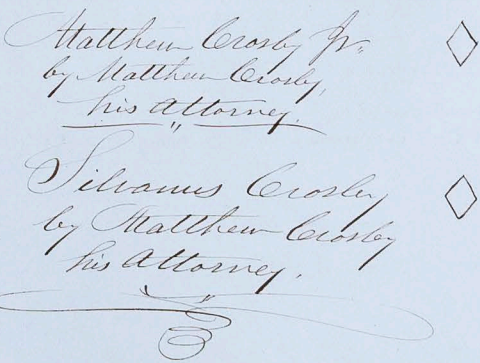 Matthew Crosby Jr.
by Matthew Crosby,
his Attorney.
Silvanus Crosby
by Matthew Crosby
his Attorney.